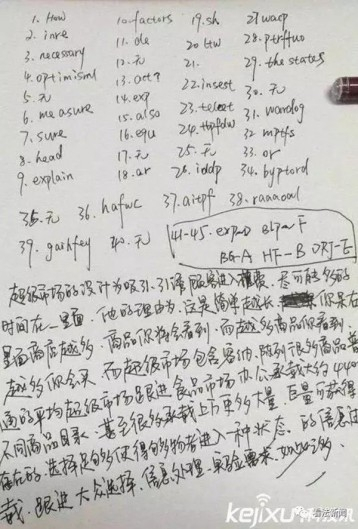 1. How
2. inre
3. necessary
4. optimisml
5. 无
6. measure
7. sure
8. head
9. explain
10. factors
11. de
12. 无
13. act?
14. exp
15. also
16. equ
17. 无
18. ar
19. sh
20. btw
21.
22. insest
23. teleet
24. tbpfdw
25. 无
26. iddp
27. wacp
28. ptrftuo
29. the states
30. 无
31. wardog
32. mptfs
33. or
34. byptord
35. 无 36. hafwc 37. aitpf 38. raaaoal
39. gaihfey 40. 无
41-45. exp-D BIP-F
BG-A HF-B ORJ-E
超级市场的设计为吸引 顾客进入 尽可能多的
时间在 里面 他的理由为 这是简单越长 你呆在
里面商店越多 商品你将会看到 而越多商品你看到
越多你会买 而超级市场包含 陈列很多商品 普
通的平均超级市场 跟进食品市场 承载大约
不同商品目录 甚至很多承载上万更多大量 巨量 可获得
存在的 选择足够使得 购物者进入一种状态 的信息过
载 跟进大众选择 信息处理 实验 要求
kejixu 科技讯